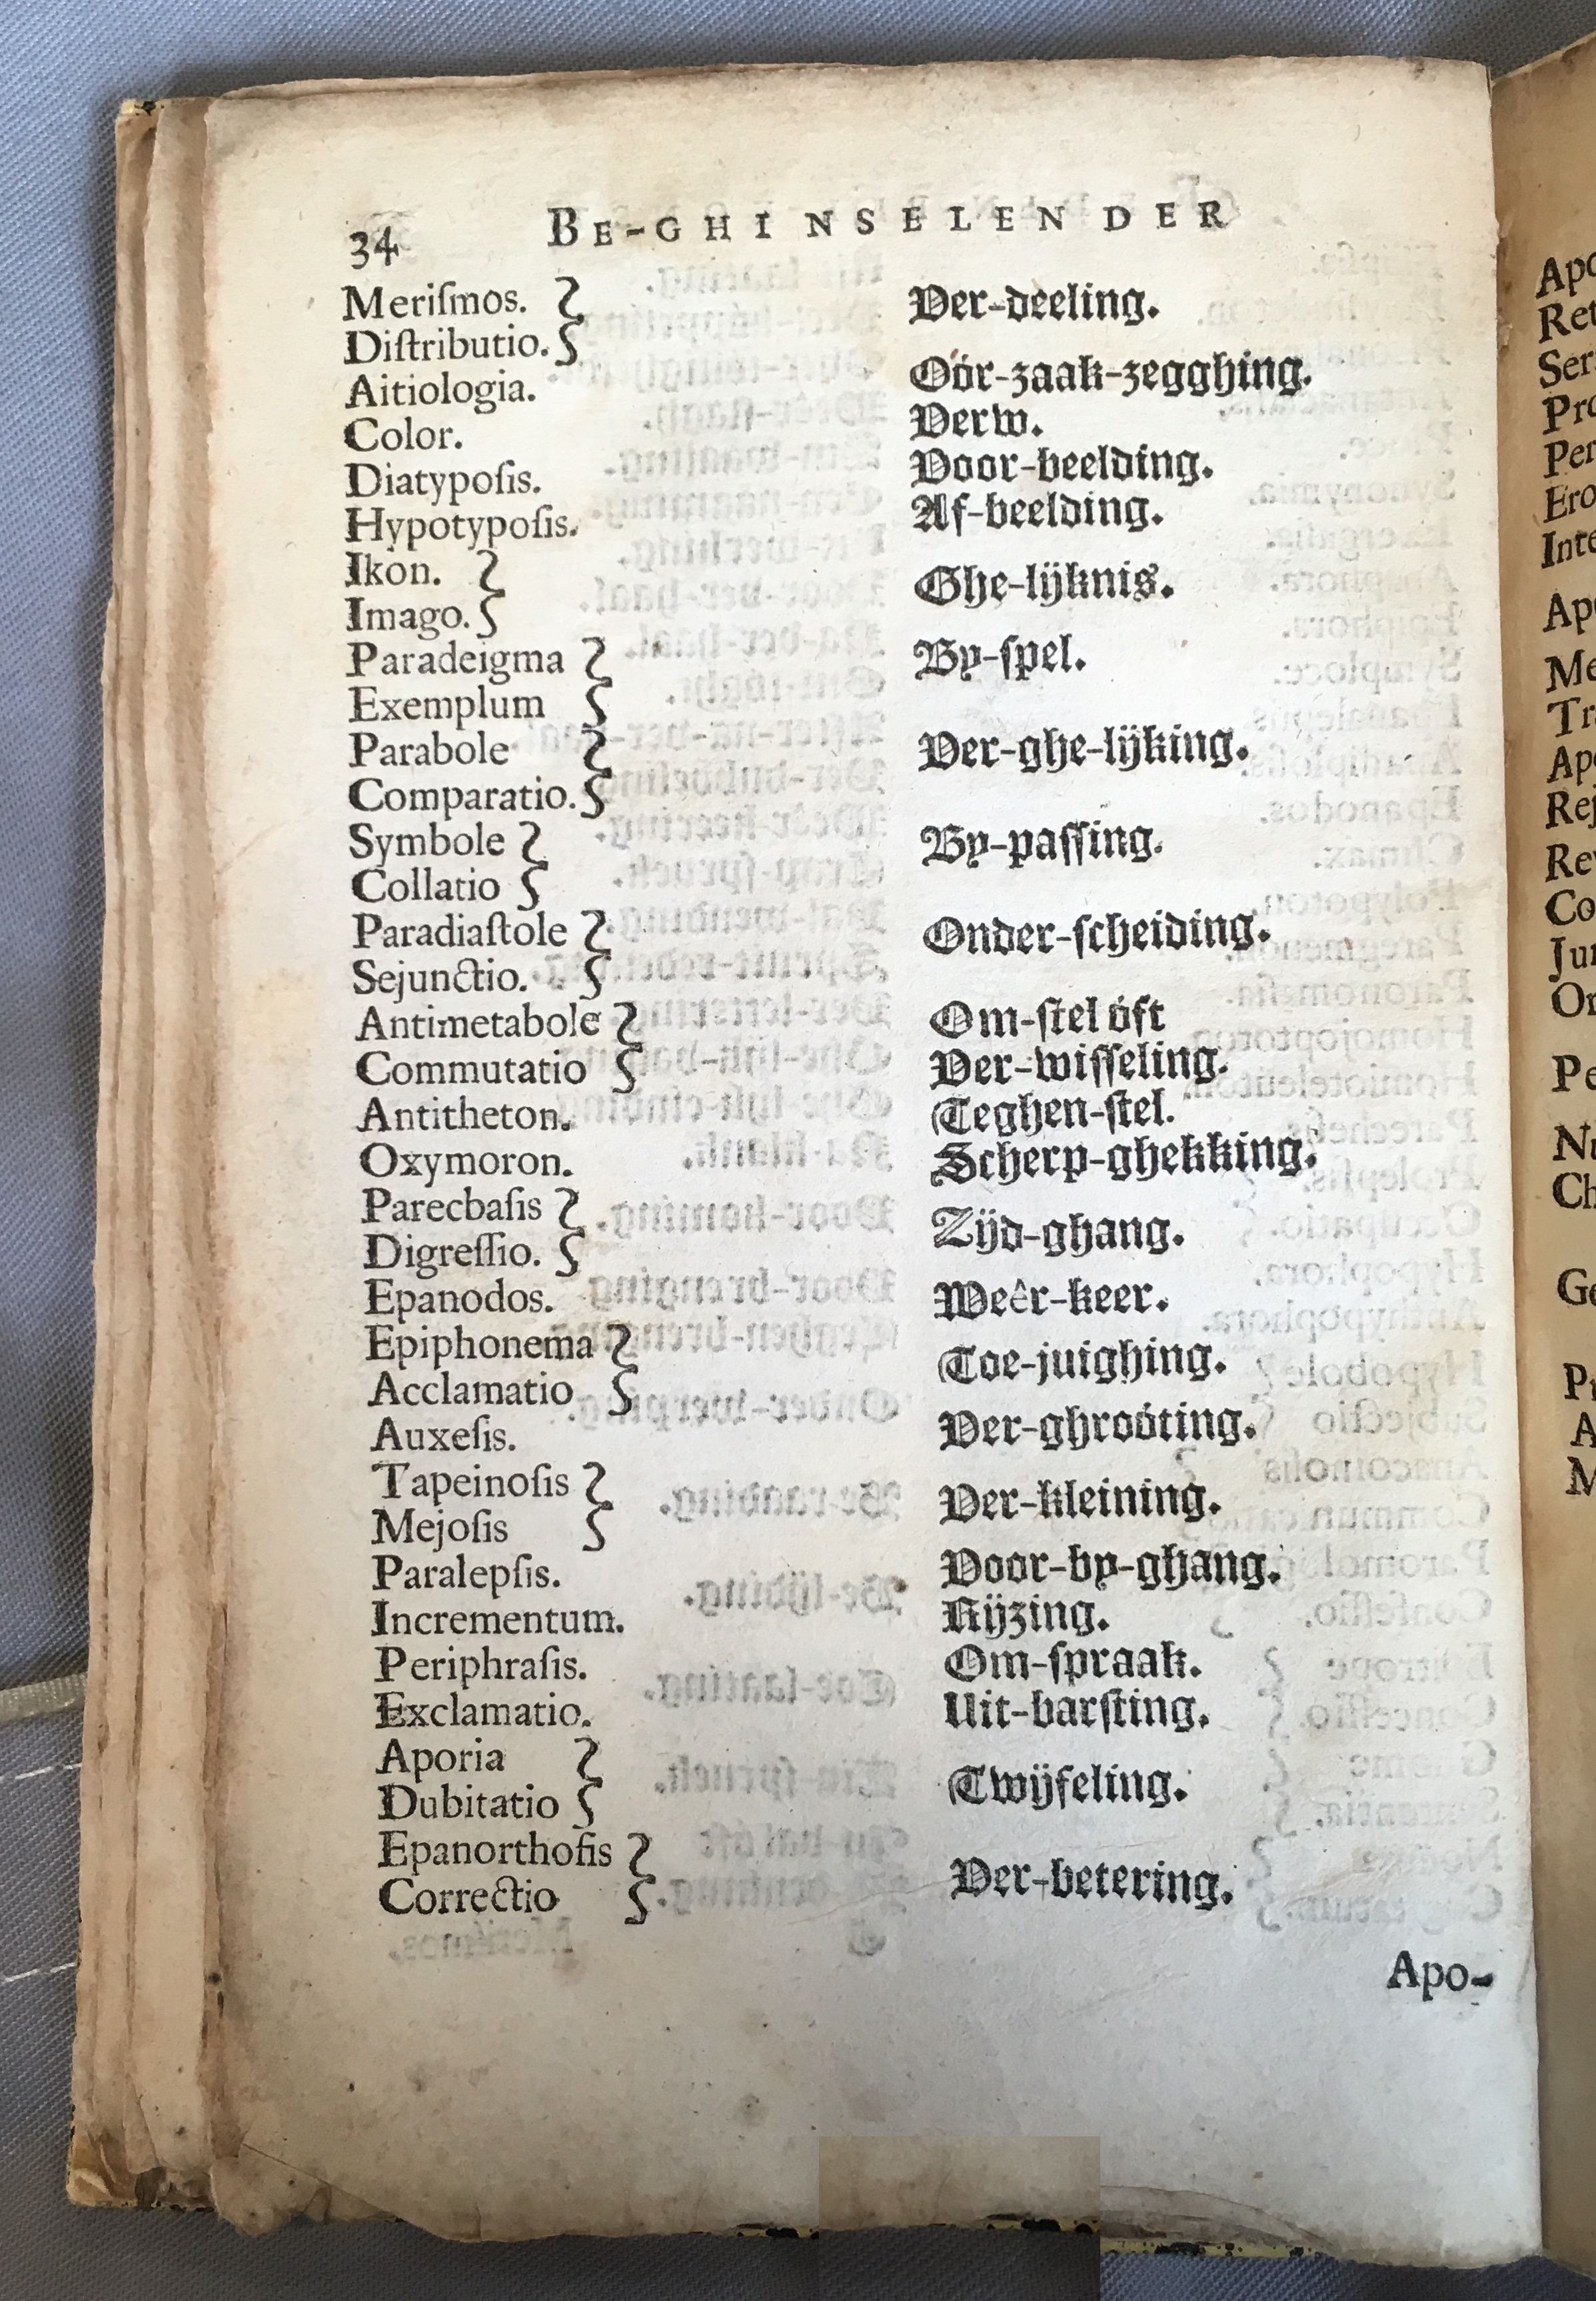 34 BE-GHINSELEN DER
Meriſmos. Ver-deeling.
Diſtributio.
Aitiologia. Oór-zaak-zegghing.
Color. Verw.
Diatypoſis. Voor-beelding.
Hypotypoſis. Af-beelding.
Ikòn. Ghe-lijknis.
Imago.
Paradeigma By-ſpel.
Exemplum
Parabole Ver-ghe-lijking.
Comparatio.
Symbole By-paſſing.
Collatio
Paradiaſtole Onder-ſcheiding.
Sejunctio.
Antimetabole Om-ſtel óft
Commutatio Ver-wiſſeling.
Antitheton. Teghen-ſtel.
Oxymoron. Scherp-ghekking.
Parecbaſis Zijd-ghang.
Digreſſio.
Epanodos. Weêr-keer.
Epiphonema Toe-juighing.
Acclamatio
Auxeſis. Ver-ghroóting.
Tapeinoſis Ver-kleining.
Mejoſis
Paralepſis. Voor-by-ghang.
Incrementum. Rijzing.
Periphraſis. Om-ſpraak.
Exclamatio. Uit-barſting.
Aporia Twijfeling.
Dubitatio
Epanorthoſis Ver-betering.
Correctio
Apo-